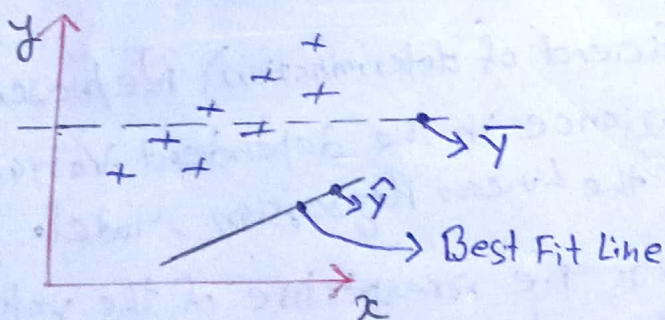 y
Ȳ
ŷ
Best Fit Line
x